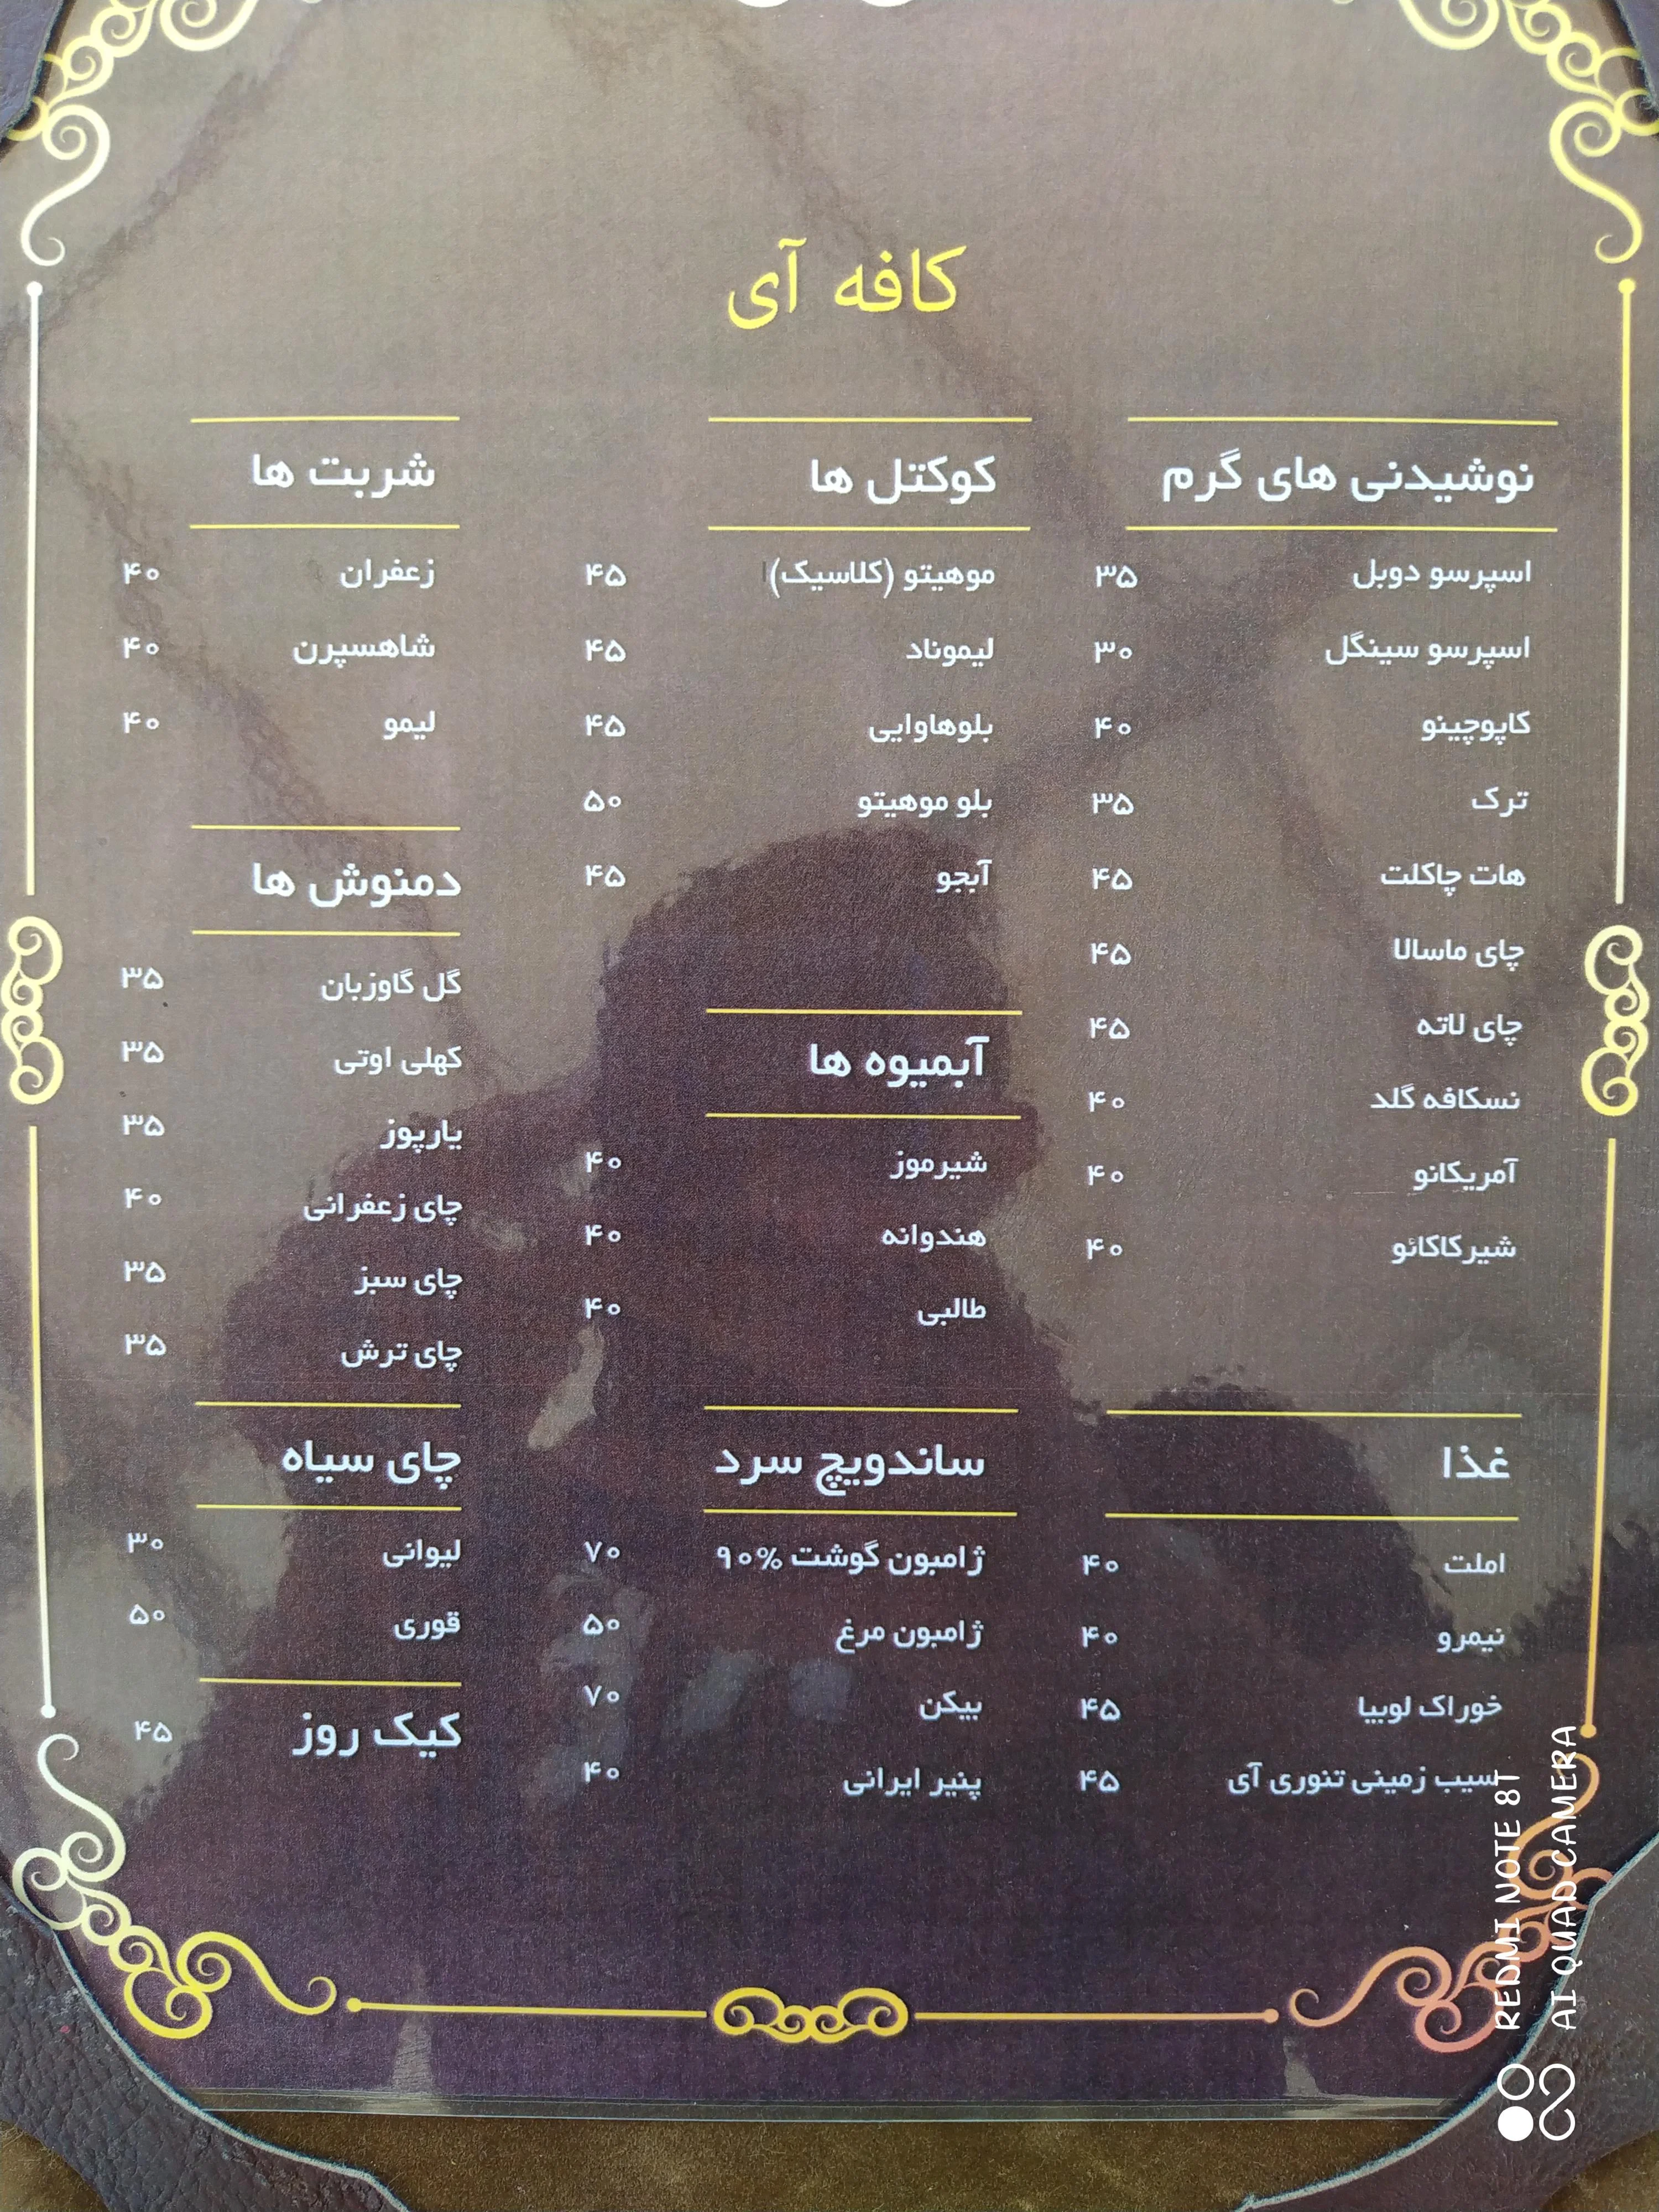 کافه آی
نوشیدنی های گرم
اسپرسو دوبل ۳۵
اسپرسو سینگل ۳۰
کاپوچینو ۴۰
ترک ۳۵
هات چاکلت ۴۵
چای ماسالا ۴۵
چای لاته ۴۵
نسکافه گلد ۴۰
آمریکانو ۴۰
شیرکاکائو ۴۰
غذا
املت ۴۰
نیمرو ۴۰
خوراک لوبیا ۴۵
سیب زمینی تنوری آی ۴۵
کوکتل ها
موهیتو (کلاسیک) ۴۵
لیموناد ۴۵
بلوهاوایی ۴۵
بلو موهیتو ۵۰
آبجو ۴۵
آبمیوه ها
شیرموز ۴۰
هندوانه ۴۰
طالبی ۴۰
ساندویچ سرد
ژامبون گوشت %۹۰ ۷۰
ژامبون مرغ ۵۰
بیکن ۷۰
پنیر ایرانی ۴۰
شربت ها
زعفران ۴۰
شاهسپرن ۴۰
لیمو ۴۰
دمنوش ها
گل گاوزبان ۳۵
کهلی اوتی ۳۵
یارپوز ۳۵
چای زعفرانی ۴۰
چای سبز ۳۵
چای ترش ۳۵
چای سیاه
لیوانی ۳۰
قوری ۵۰
کیک روز ۴۵
REDMI NOTE 8T
AI QUAD CAMERA